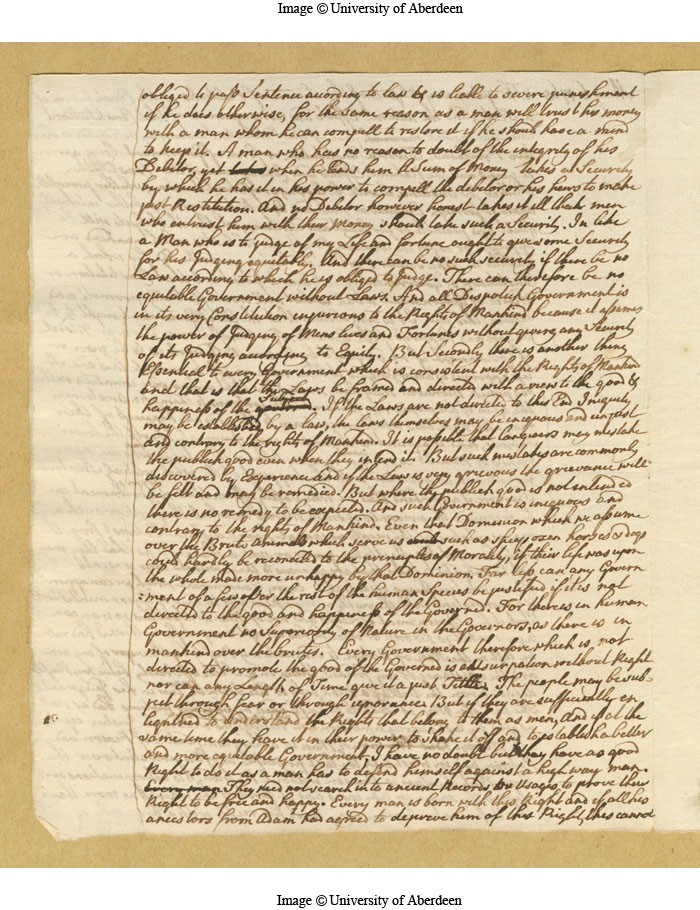 Image © University of Aberdeen
obliged to pass Sentence according to law & is liable to severe punishment
if he does otherwise, for the same reason as a man will trust his money
with a man whom he can compell to restore it if he should have a mind
to keep it. A man who has no reason to doubt of the integrity of his
Debitor, yet when he lends him a Sum of Money takes a Security
by which he has it in his power to compell the debitor or his heirs to make
just Restitution. And no Debitor however honest takes it ill that men
who entrust him with their Money should take such a Security. In like
a Man who is to judge of my Life and fortune ought to give some Security
for his Judging equitably. And there can be no such security if there be no
Law according to which he is obliged to Judge. There can therefore be no
equitable Government without Laws. And all Despotick Government is
in its very Constitution injurious to the Rights of Mankind because it assumes
the power of Judging of Mens lives and Fortunes without giving any Security
of its Judging according to Equity. But Secondly there is another thing
Essential to every Government which is consistent with the Rights of Mankind
and that is that the Laws be framed and directed with a view to the good &
happiness of the Subject. If the Laws are not directed to this End Iniquity
may be established by a law, the laws themselves may be iniquous and unjust
and contrary to the rights of Mankind. It is possible that lawgivers may mistake
the publick good even when they intend it. But such mistakes are commonly
discovered by Experience and if the Law is very grievous the grievance will
be felt and may be remedied. But where the publick good is not intended
there is no remedy to be expected. And such Government is iniquous and
contrary to the rights of Mankind. Even that Dominion which we assume
over the Brute Animals which serve us such as sheep oxen horses & dogs
could hardly be reconciled to the principles of Morality, if their life was upon
the whole made more unhappy by that Dominion. Far less can any Govern
=ment of a few over the rest of the human Species be justified if it is not
directed to the good and happiness of the Governed. For there is in human
Government no Superiority of Nature in the Governors, as there is in
mankind over the brutes. Every Government therefore which is not
directed to promote the good of the Governed is an usurpation without Right
nor can any Length of Time give it a just Tittle. The people may be sub-
ject through fear or through ignorance. But if they are sufficiently en
lightned to understand the Rights that belong to them as men, And if at the
same time they have it in their power to shake it off and to establish a better
and more equitable Government, I have no doubt but they have as good
Right to do it as a man has to defend himself against a high way man.
Every man They need not search into ancient Records, or Usages, to prove their
Right to be free and happy. Every man is born with this Right and if all his
ancestors from Adam had agreed to depreve him of this Right, this cannot
Image © University of Aberdeen